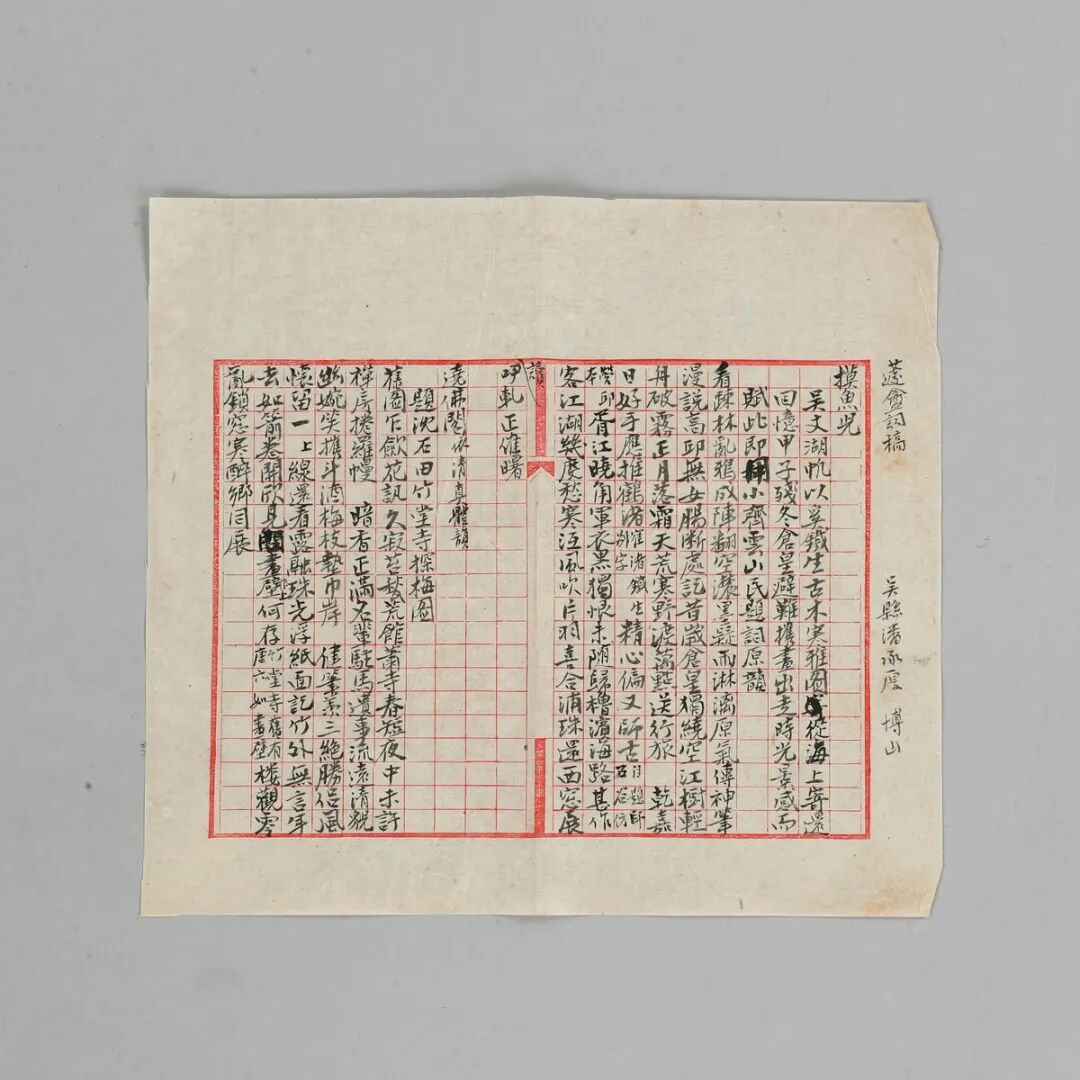 蘧盦詞稿
吳縣潘承厚 博山
摸魚兒
吳文湖帆以奚鐵生古木寒雅圖從海上寄還
回憶甲子殘冬倉皇避難攜畫出走時光景感而
賦此即用小齊雲山民題詞原韻
看疎林亂鴉成陣翻空濃墨疑雨淋漓原氣傳神筆
漫說高邱無女腸斷處記昔歲倉皇獨繞空江樹輕
舟破霧正月落霜天荒寒野渡萬點送行旅 乾嘉
日好手應推鶴渚鶴渚鐵生別字精心偏又師古自題師石谷仿
營邱胥江曉角軍衣黑獨恨未隨歸櫓濱海路甚作
客江湖幾度愁寒冱風吹片羽喜合浦珠還西窓展
讀
咿軋正催曙
遶佛閣依清真體韻
題沈石田竹堂寺探梅圖
舊圖乍歛花訊久寂苔砌荒館蕭寺春短夜中未許
禪房捲羅幔 暗香正滿名輩駐馬遺事流遠清貌
幽婉笑攜斗酒梅枝墊巾岸 佳筆素三絶勝侶風
懷留一上線還看露融珠光浮紙面記竹外無言年
去如箭卷開欣見畫壁何存竹堂寺舊有唐六如畫壁樓觀零
亂鎖窓寒醉鄉同展